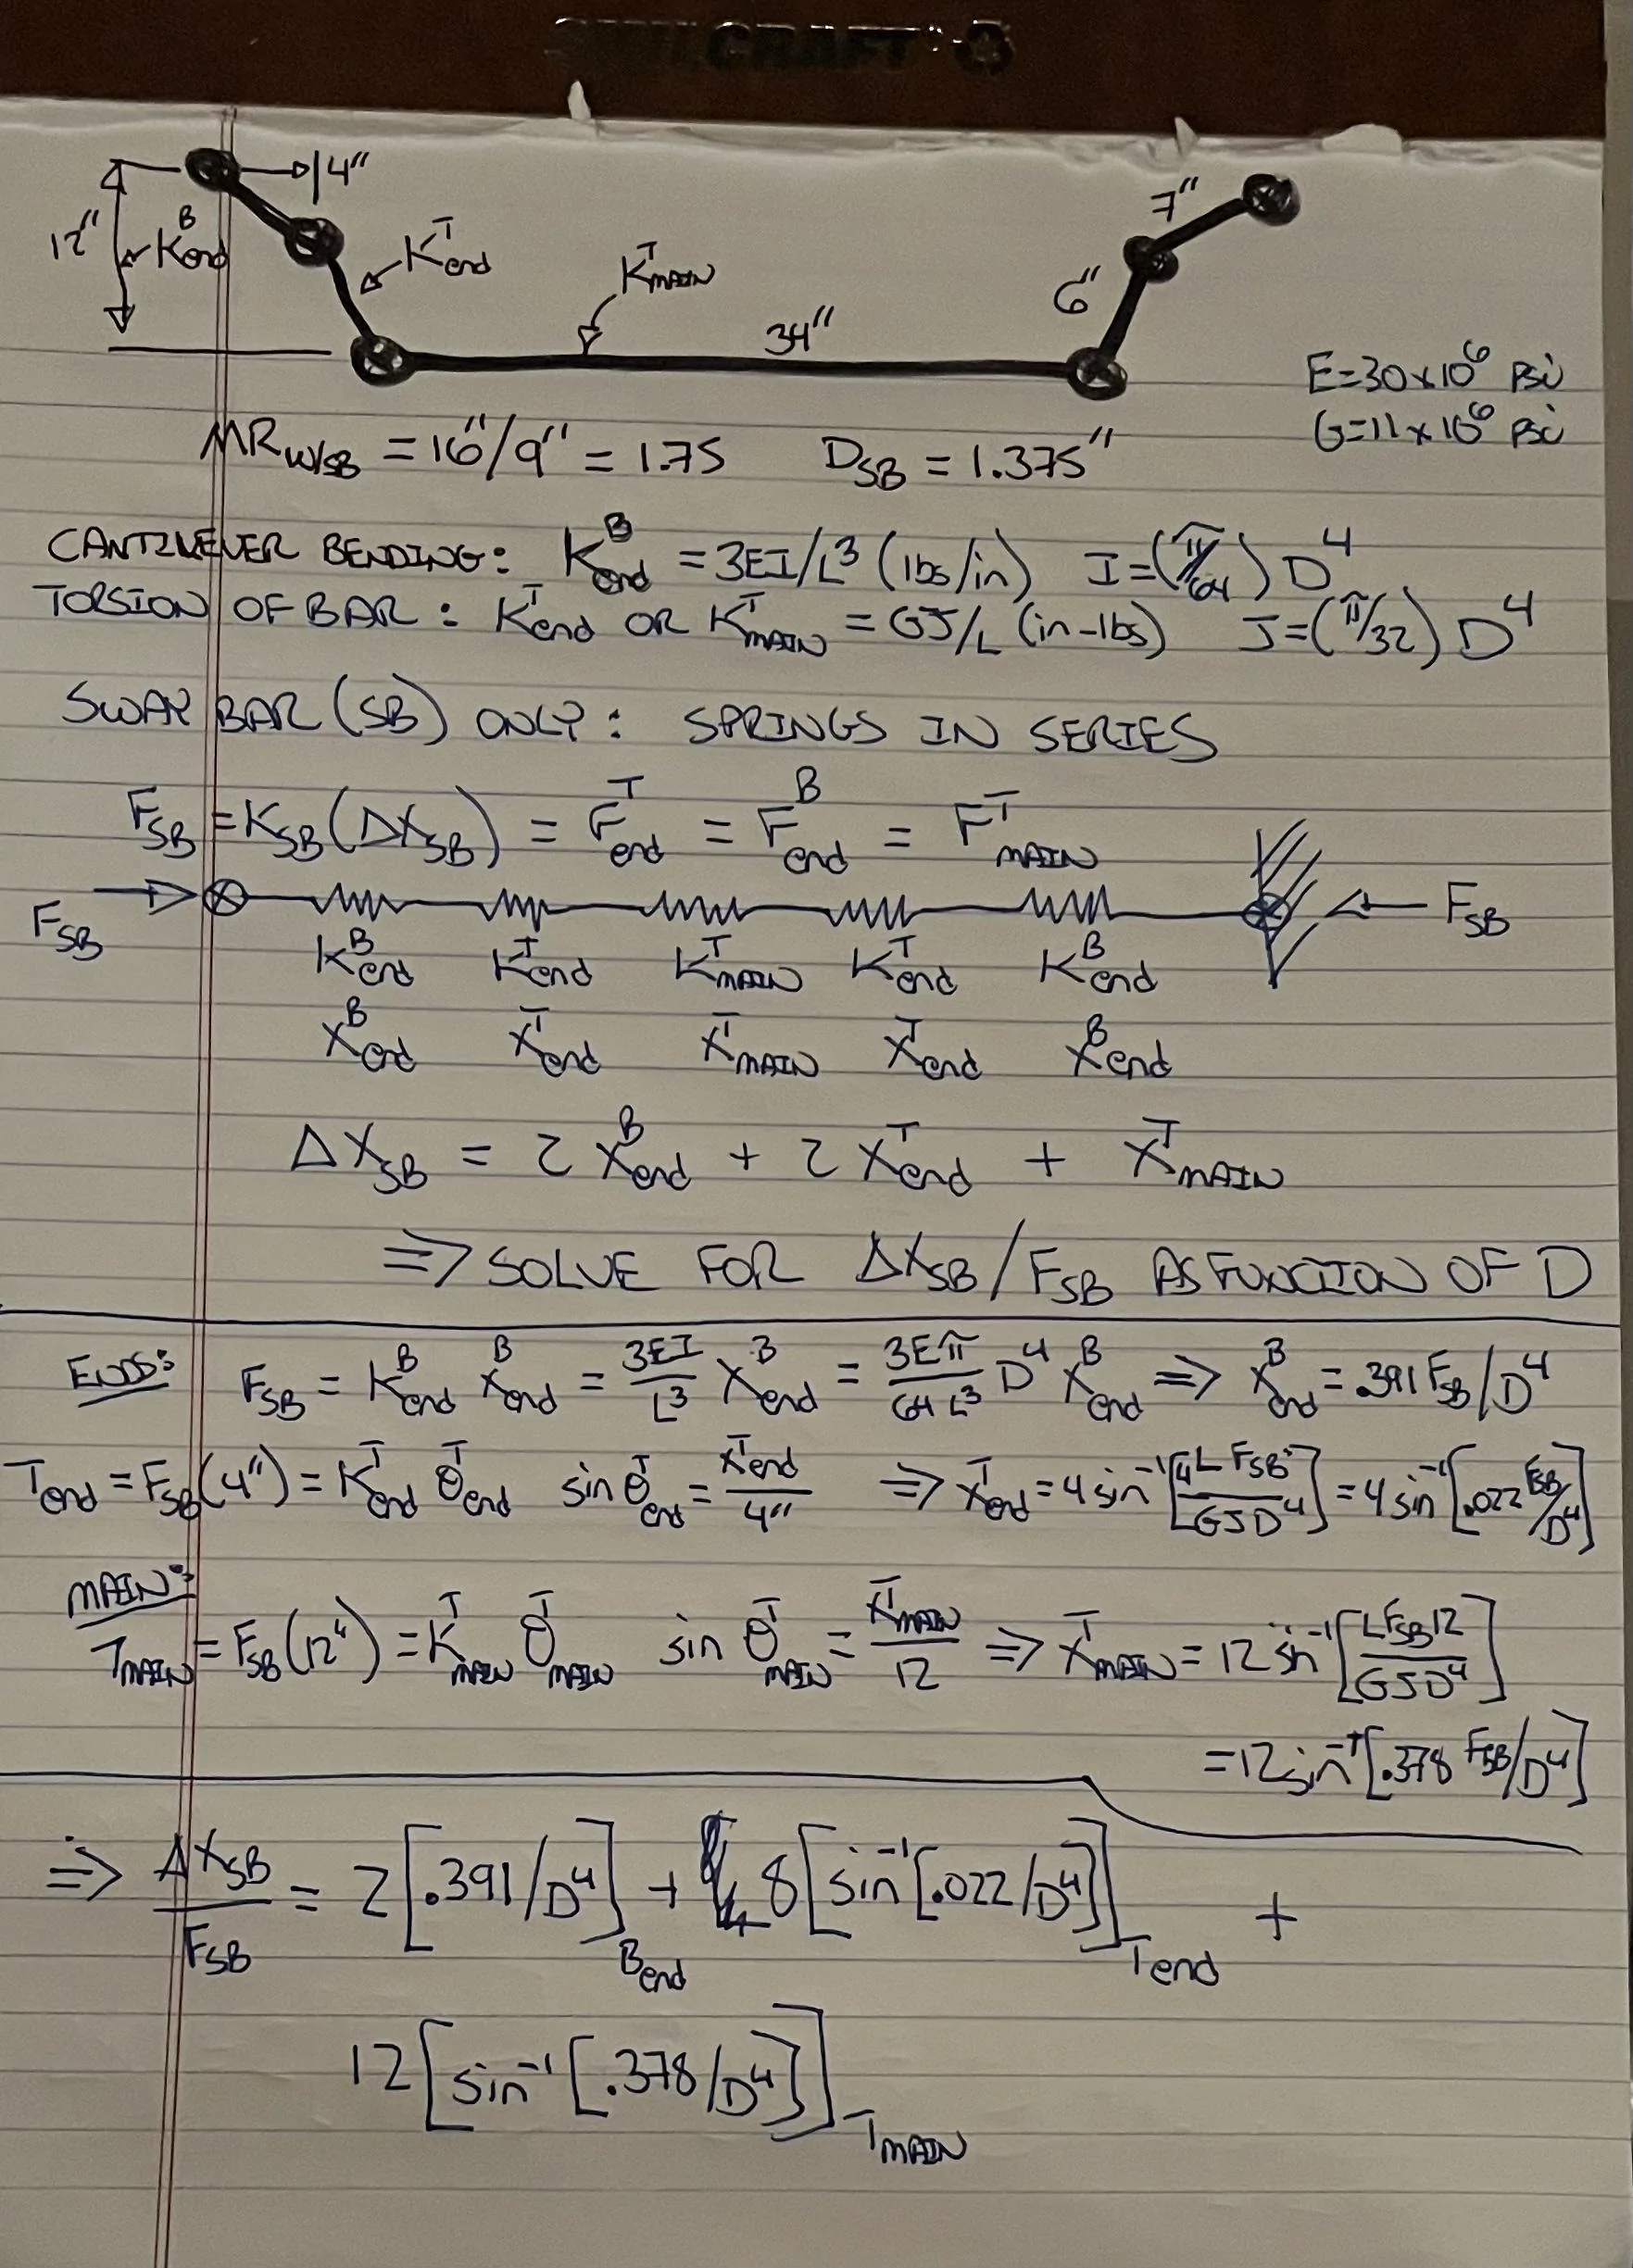 12"
|4"
K^B_end
K^T_end
K^T_MAIN
34"
6"
7"
E=30x10^6 PSi
G=11x10^6 PSi
MR_W/SB = 16"/9" = 1.75 D_SB = 1.375"
CANTILEVER BENDING: K^B_end = 3EI/L^3 (lbs/in) I=(π/64) D^4
TORSION OF BAR: K^T_end OR K^T_MAIN = GJ/L (in-lbs) J=(π/32) D^4
SWAY BAR (SB) ONLY: SPRINGS IN SERIES
F_SB = K_SB(ΔX_SB) = F^T_end = F^B_end = F^T_MAIN
F_SB F_SB
K^B_end K^T_end K^T_MAIN K^T_end K^B_end
X^B_end X^T_end X^T_MAIN X^T_end X^B_end
ΔX_SB = 2 X^B_end + 2 X^T_end + X^T_MAIN
=> SOLVE FOR ΔX_SB/F_SB AS FUNCTION OF D
ENDS: F_SB = K^B_end X^B_end = 3EI/L^3 X^B_end = 3Eπ/64L^3 D^4 X^B_end => X^B_end = .391 F_SB/D^4
T_end = F_SB(4") = K^T_end θ^T_end sin θ^T_end = X^T_end/4" => X^T_end = 4 sin^-1[4LF_SB/GJD^4] = 4 sin^-1[.022 F_SB/D^4]
MAIN:
T_MAIN = F_SB(12") = K^T_MAIN θ^T_MAIN sin θ^T_MAIN = X^T_MAIN/12 => X^T_MAIN = 12 sin^-1[LF_SB12/GJD^4]
= 12 sin^-1[.378 F_SB/D^4]
=> ΔX_SB/F_SB = 2[.391/D^4]_B_end + 8[sin^-1[.022/D^4]]_T_end +
12[sin^-1[.378/D^4]]_T_MAIN